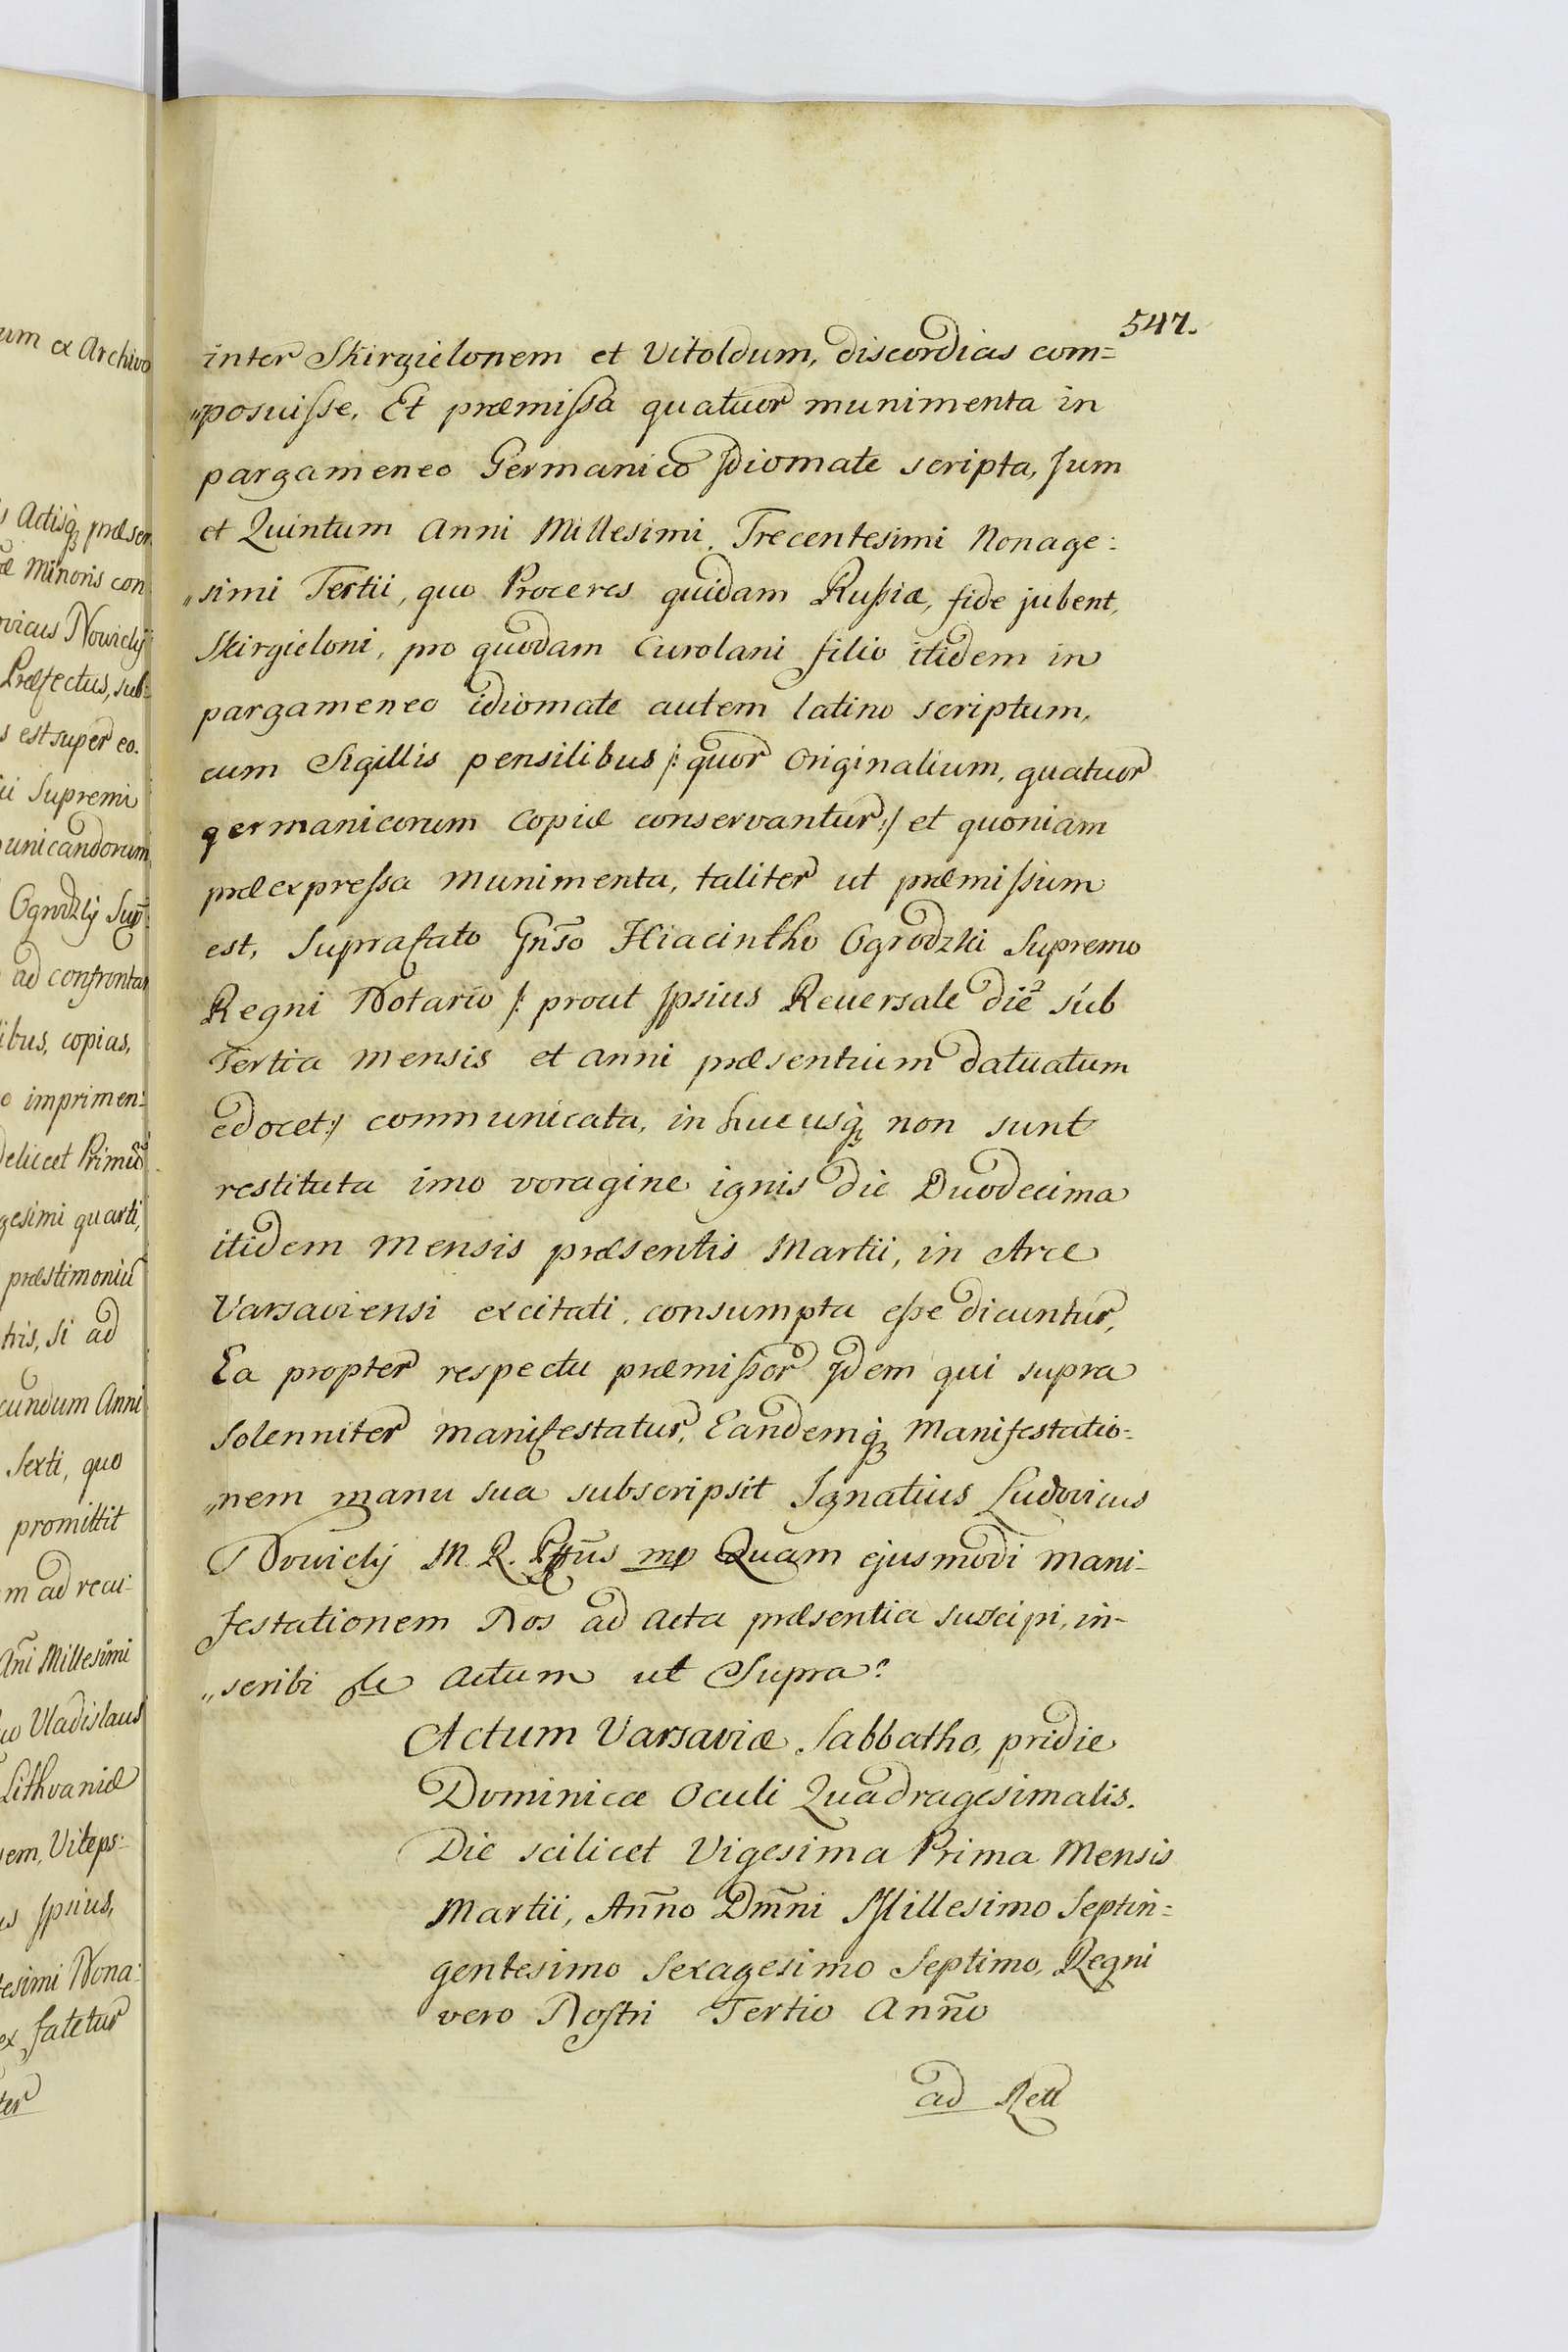 547.
inter Skirgielonem et Vitoldum, discordias com=
„posuisse. Et præmissa quatuor munimenta in
pargameneo Germanico Idiomate scripta, Tum
et Quintum Anni Millesimi Trecentesimi Nonage:
„simi Tertii, quo Proceres quidam Russiæ, fide jubent,
Skirgieloni, pro quodam Curolani filio itidem in
pargameneo idiomate autem latino scriptum,
cum Sigillis pensilibus /: quor Originalium, quatuor
germanicorum Copiæ conservantur :/ et quoniam
præexpressa munimenta, taliter ut præmissum
est, Suprafato Gnso Hiacintho Ogrodzki Supremo
Regni Notario /: prout Ipsius Reversale die sub
Tertia mensis et anni præsentium datuatum
edocet :/ communicata, in hucusq; non sunt
restituta imo voragine ignis die Duodecima
itidem Mensis præsentis Martii, in Arce
Varsaviensi excitati, consumpta esse dicuntur,
Ea propter respectu præmissor Idem qui supra
Solenniter manifestatur, Eandemq; Manifestatio=
„nem manu sua subscripsit Ignatius Ludovicus
Nowicky M. R. Pfftus mp Quam ejusmodi mani-
festationem Nos ad Acta præsentia suscipi, in-
„scribi &c Actum ut Supra.
Actum Varsaviæ Sabbatho, pridie
Dominicæ Oculi Quadragesimalis.
Die scilicet Vigesima Prima Mensis
Martii, Anno Dmni Millesimo Septin=
gentesimo Sexagesimo Septimo, Regni
vero Nostri Tertio Anno
ad Rell
um ex Archivo
Actisq; præsen
æ Minoris con
ovicus Nowicky
Præfectus, sub=
s est super eo.
ii Supremi
unicandorum
Ogrodzky Sup
ad confrontan
ibus, copias,
o imprimen:
delicet Primu
gesimi quarti,
præstimoniu
tris, Si ad
cundum Anni
Sexti, quo
promittit
m ad recu:
Ani Millesimi
uo Vladislaus
Lithvaniæ
sem, Viteps:
us Ipsius,
tesimi Nona:
ex fatetur
ter